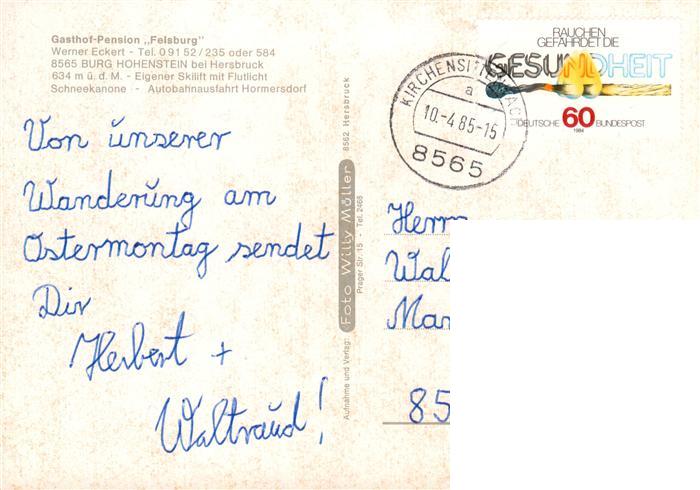 Gasthof-Pension „Felsburg"
Werner Eckert - Tel. 0 91 52 / 235 oder 584
8565 BURG HOHENSTEIN bei Hersbruck
634 m ü. d. M. - Eigener Skilift mit Flutlicht
Schneekanone - Autobahnausfahrt Hormersdorf
Von unserer
Wanderung am
Ostermontag sendet
Dir
Herbert +
Waltraud!
Aufnahme und Verlag: Foto Willy Müller 8562 Hersbruck
Prager Str. 15 - Tel. 2468
KIRCHENSITTENBACH
a
10.-4.85-15
8565
RAUCHEN
GEFÄHRDET DIE
GESUNDHEIT
DEUTSCHE 60 BUNDESPOST
1984
Herrn
Wal
Mar
85